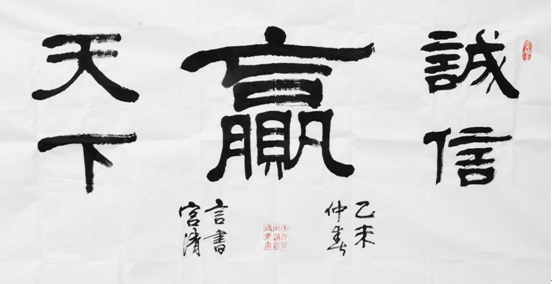 誠信
贏
天下
乙未
仲春
言書
宮清